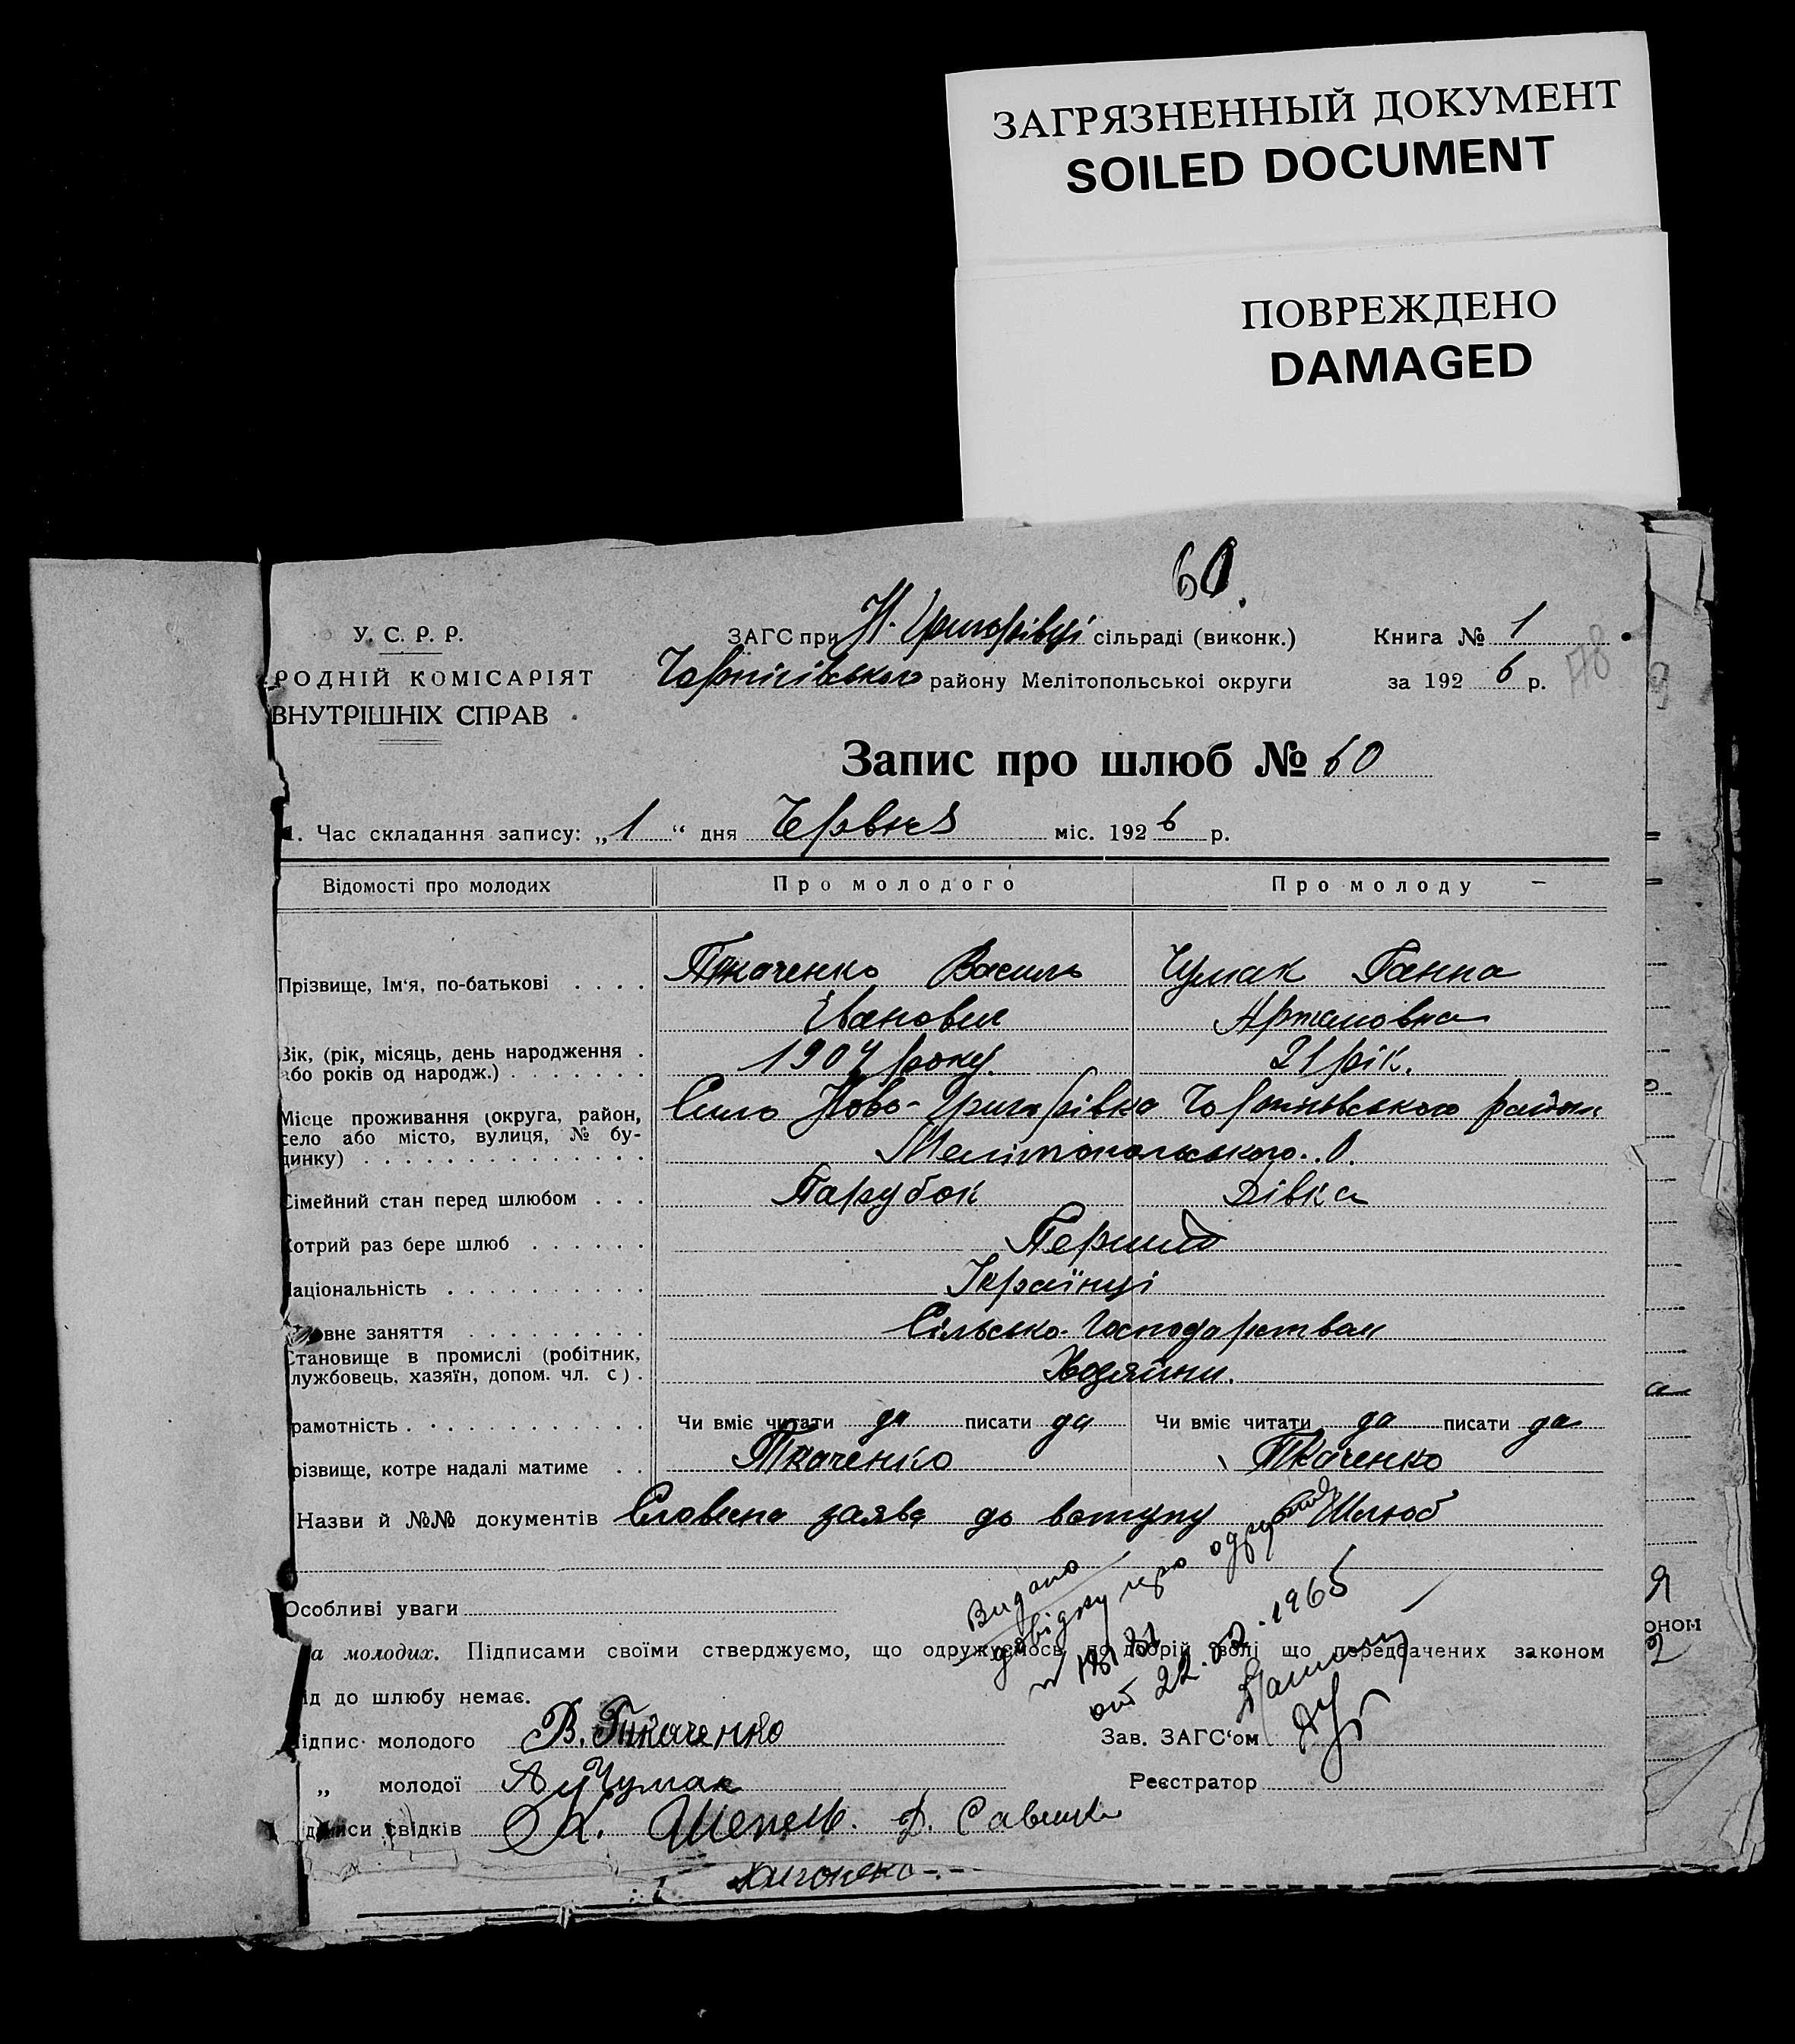 ЗАГРЯЗНЕННЫЙ ДОКУМЕНТ
SOILED DOCUMENT
ПОВРЕЖДЕНО
DAMAGED
60.
У. С. Р. Р.
РОДНІЙ КОМІСАРІЯТ
ВНУТРІШНІХ СПРАВ
ЗАГС при Н. Григорівці сільраді (виконк.)
Чернігівського району Мелітопольської округи
Книга № 1
за 192 6 р.
Запис про шлюб № 60
1. Час складання запису: „ 1 “ дня Червня міс. 192 6 р.
Відомості про молодих Про молодого Про молоду
Прізвище, Ім'я, по-батькові . . . . Ткаченко Василь Чумак Ганна
Іванович Артемовна
Вік, (рік, місяць, день народження . 1904 року. 21 рік.
або років од народж.) . . . . . . .
Місце проживання (округа, район, Село Ново-Григорівка Чернігівського району
село або місто, вулиця, № бу-
динку) . . . . . . . . . . . . . . Мелітопольського. О.
Сімейний стан перед шлюбом . . . Парубок Дівка
отрий раз бере шлюб . . . . . . Перший
аціональність . . . . . . . . . . Українці
овне заняття . . . . . . . . . Сільсько-Господарством
Становище в промислі (робітник,
лужбовець, хазяїн, допом. чл. с) . Хозяїни.
рамотність . . . . . . . . . . . . Чи вміє читати да писати да Чи вміє читати да писати да
різвище, котре надалі матиме . . Ткаченко Ткаченко
Назви й №№ документів Словесна заява до вступу Шлюб
Видано
довідку про
от 22. 02. 1965
Особливі уваги
а молодих. Підписами своїми стверджуємо, що одружуємось по добрій волі що передбачених законом
ід до шлюбу немає.
ідпис молодого В. Ткаченко Зав. ЗАГС'ом
„ молодої Чумак Реєстратор
писи свідків К. Шепель. Д.